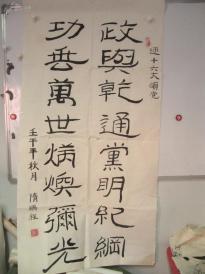 迎十六大頌党
政與乾通黨明紀綱
功垂萬世炳煥彌光
壬午年秋月